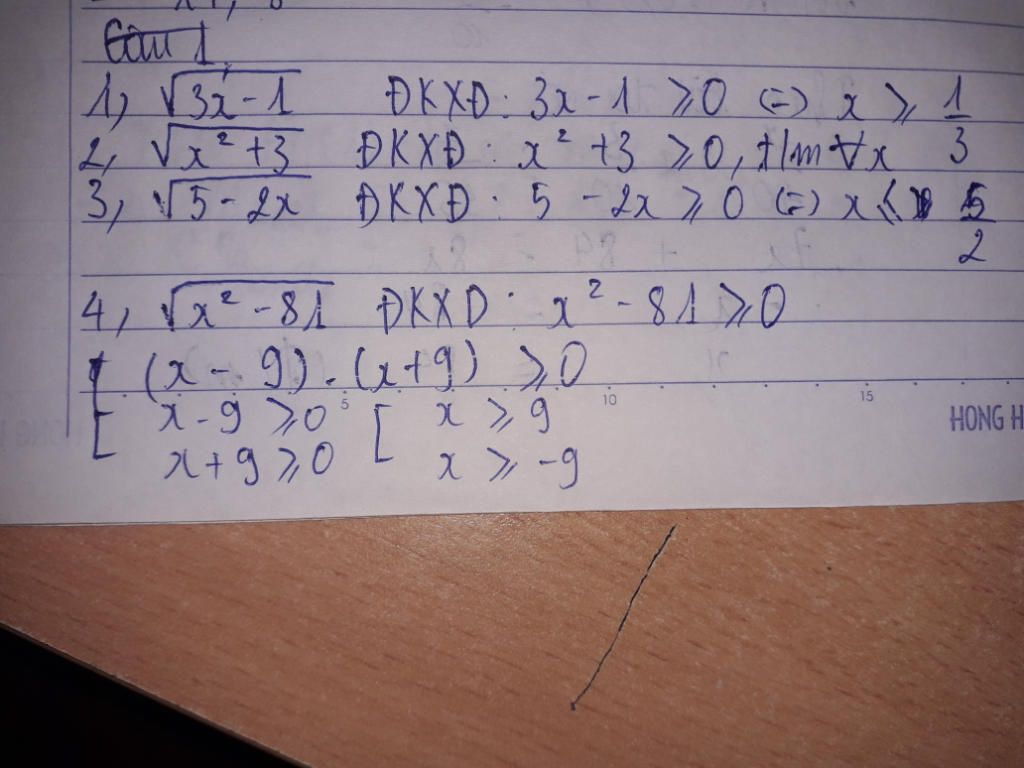 Câu 1
1, √3x - 1 ĐKXĐ: 3x - 1 ⩾ 0 (=) x ⩾ 1/3
2, √x² + 3 ĐKXĐ: x² + 3 ⩾ 0, t/m ∀x
3, √5 - 2x ĐKXĐ: 5 - 2x ⩾ 0 (=) x ⩽ 5/2
4, √x² - 81 ĐKXD: x² - 81 ⩾ 0
(x - 9) . (x + 9) ⩾ 0
[ x - 9 ⩾ 0 [ x ⩾ 9
x + 9 ⩾ 0 x ⩾ -9
5 10 15
HONG H